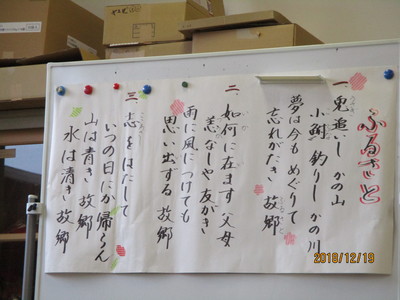 ふるさと
一、兎追いし かの山
小鮒 釣りし かの川
夢は今も めぐりて
忘れがたき 故郷
二、如何に在ます 父母
恙なしや 友がき
雨に風につけても
思い出する 故郷
三、志をはたして
いつの日にか 帰らん
山は青き 故郷
水は清き 故郷
2018/12/19